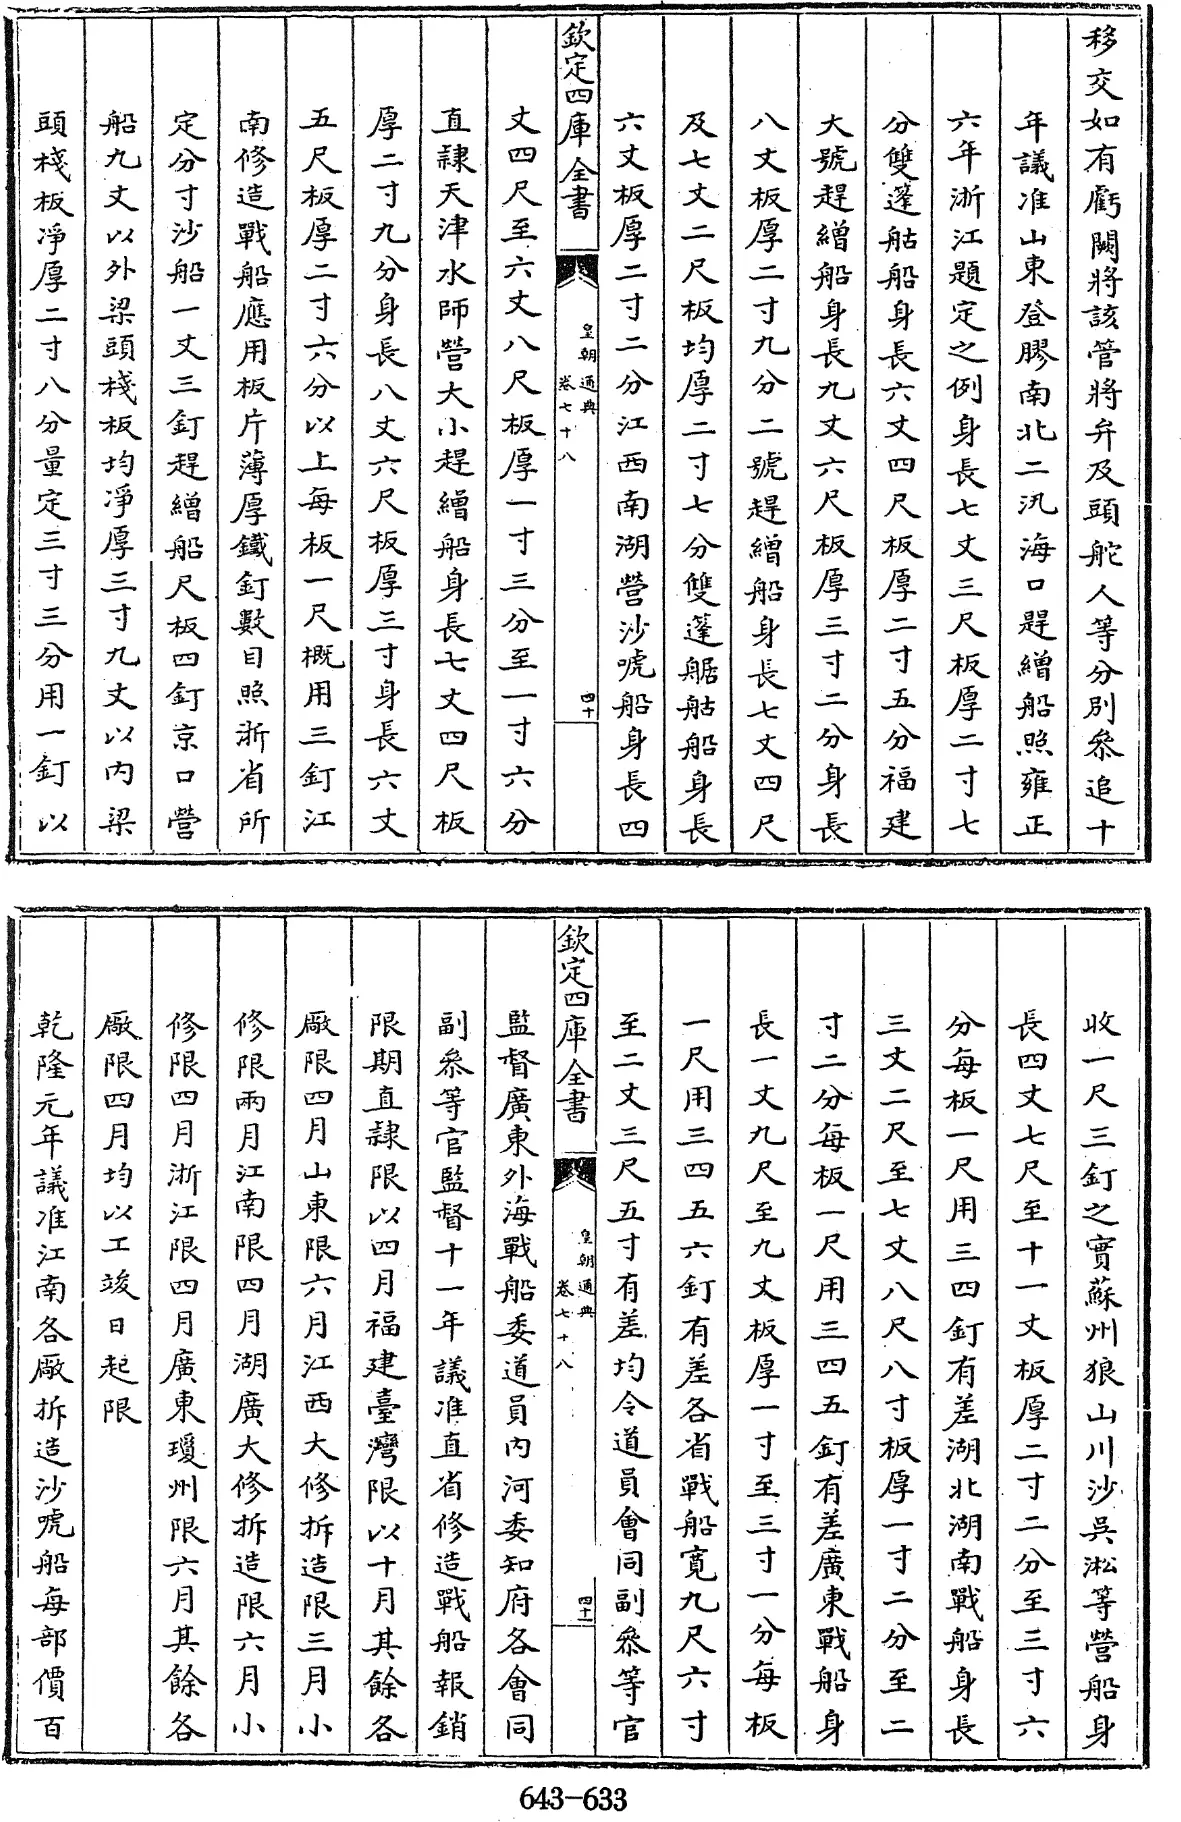 移交如有虧闕將該管將弁及頭舵人等分別叅追十
年議准山東登膠南北二汛海口趕繒船照雍正
六年浙江題定之例身長七丈三尺板厚二寸七
分雙蓬艍船身長六丈四尺板厚二寸五分福建
大號趕繒船身長九丈六尺板厚三寸二分身長
八丈板厚二寸九分二號趕繒船身長七丈四尺
及七丈二尺板均厚二寸七分雙蓬艍船身長
六丈板厚二寸二分江西南湖營沙唬船身長四
欽定四庫全書
皇朝通典
卷七十八
四十
丈四尺至六丈八尺板厚一寸三分至一寸六分
直隸天津水師營大小趕繒船身長七丈四尺板
厚二寸九分身長八丈六尺板厚三寸身長六丈
五尺板厚二寸六分以上每板一尺概用三釘江
南修造戰船應用板片薄厚鐵釘數目照浙省所
定分寸沙船一丈三釘趕繒船尺板四釘京口營
船九丈以外梁頭棧板均凈厚三寸九丈以內梁
頭棧板凈厚二寸八分量定三寸三分用一釘以
收一尺三釘之實蘇州狼山川沙吳淞等營船身
長四丈七尺至十一丈板厚二寸二分至三寸六
分每板一尺用三四釘有差湖北湖南戰船身長
三丈二尺至七丈八尺八寸板厚一寸二分至二
寸二分每板一尺用三四五釘有差廣東戰船身
長一丈九尺至九丈板厚一寸至三寸一分每板
一尺用三四五六釘有差各省戰船寬九尺六寸
至二丈三尺五寸有差均令道員會同副叅等官
欽定四庫全書
皇朝通典
卷七十八
四十一
監督廣東外海戰船委道員內河委知府各會同
副叅等官監督十一年議准直省修造戰船報銷
限期直隸限以四月福建臺灣限以十月其餘各
廠限四月山東限六月江西大修拆造限三月小
修限兩月江南限四月湖廣大修拆造限六月小
修限四月浙江限四月廣東瓊州限六月其餘各
廠限四月均以工竣日起限
乾隆元年議准江南各廠拆造沙唬船每部價百
643-633